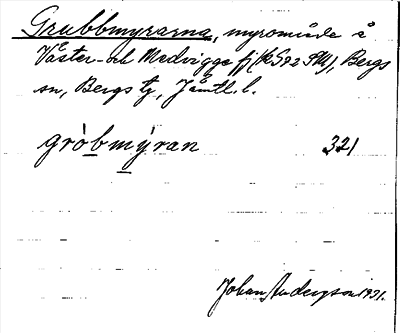 Grubbmyrarna, myrområde å
Väster- och Medvigge fj (k S92 SM), Bergs
sn, Bergs tg, Jämtl. l.
gròbmýran 321
Johan Anderzson 1931.